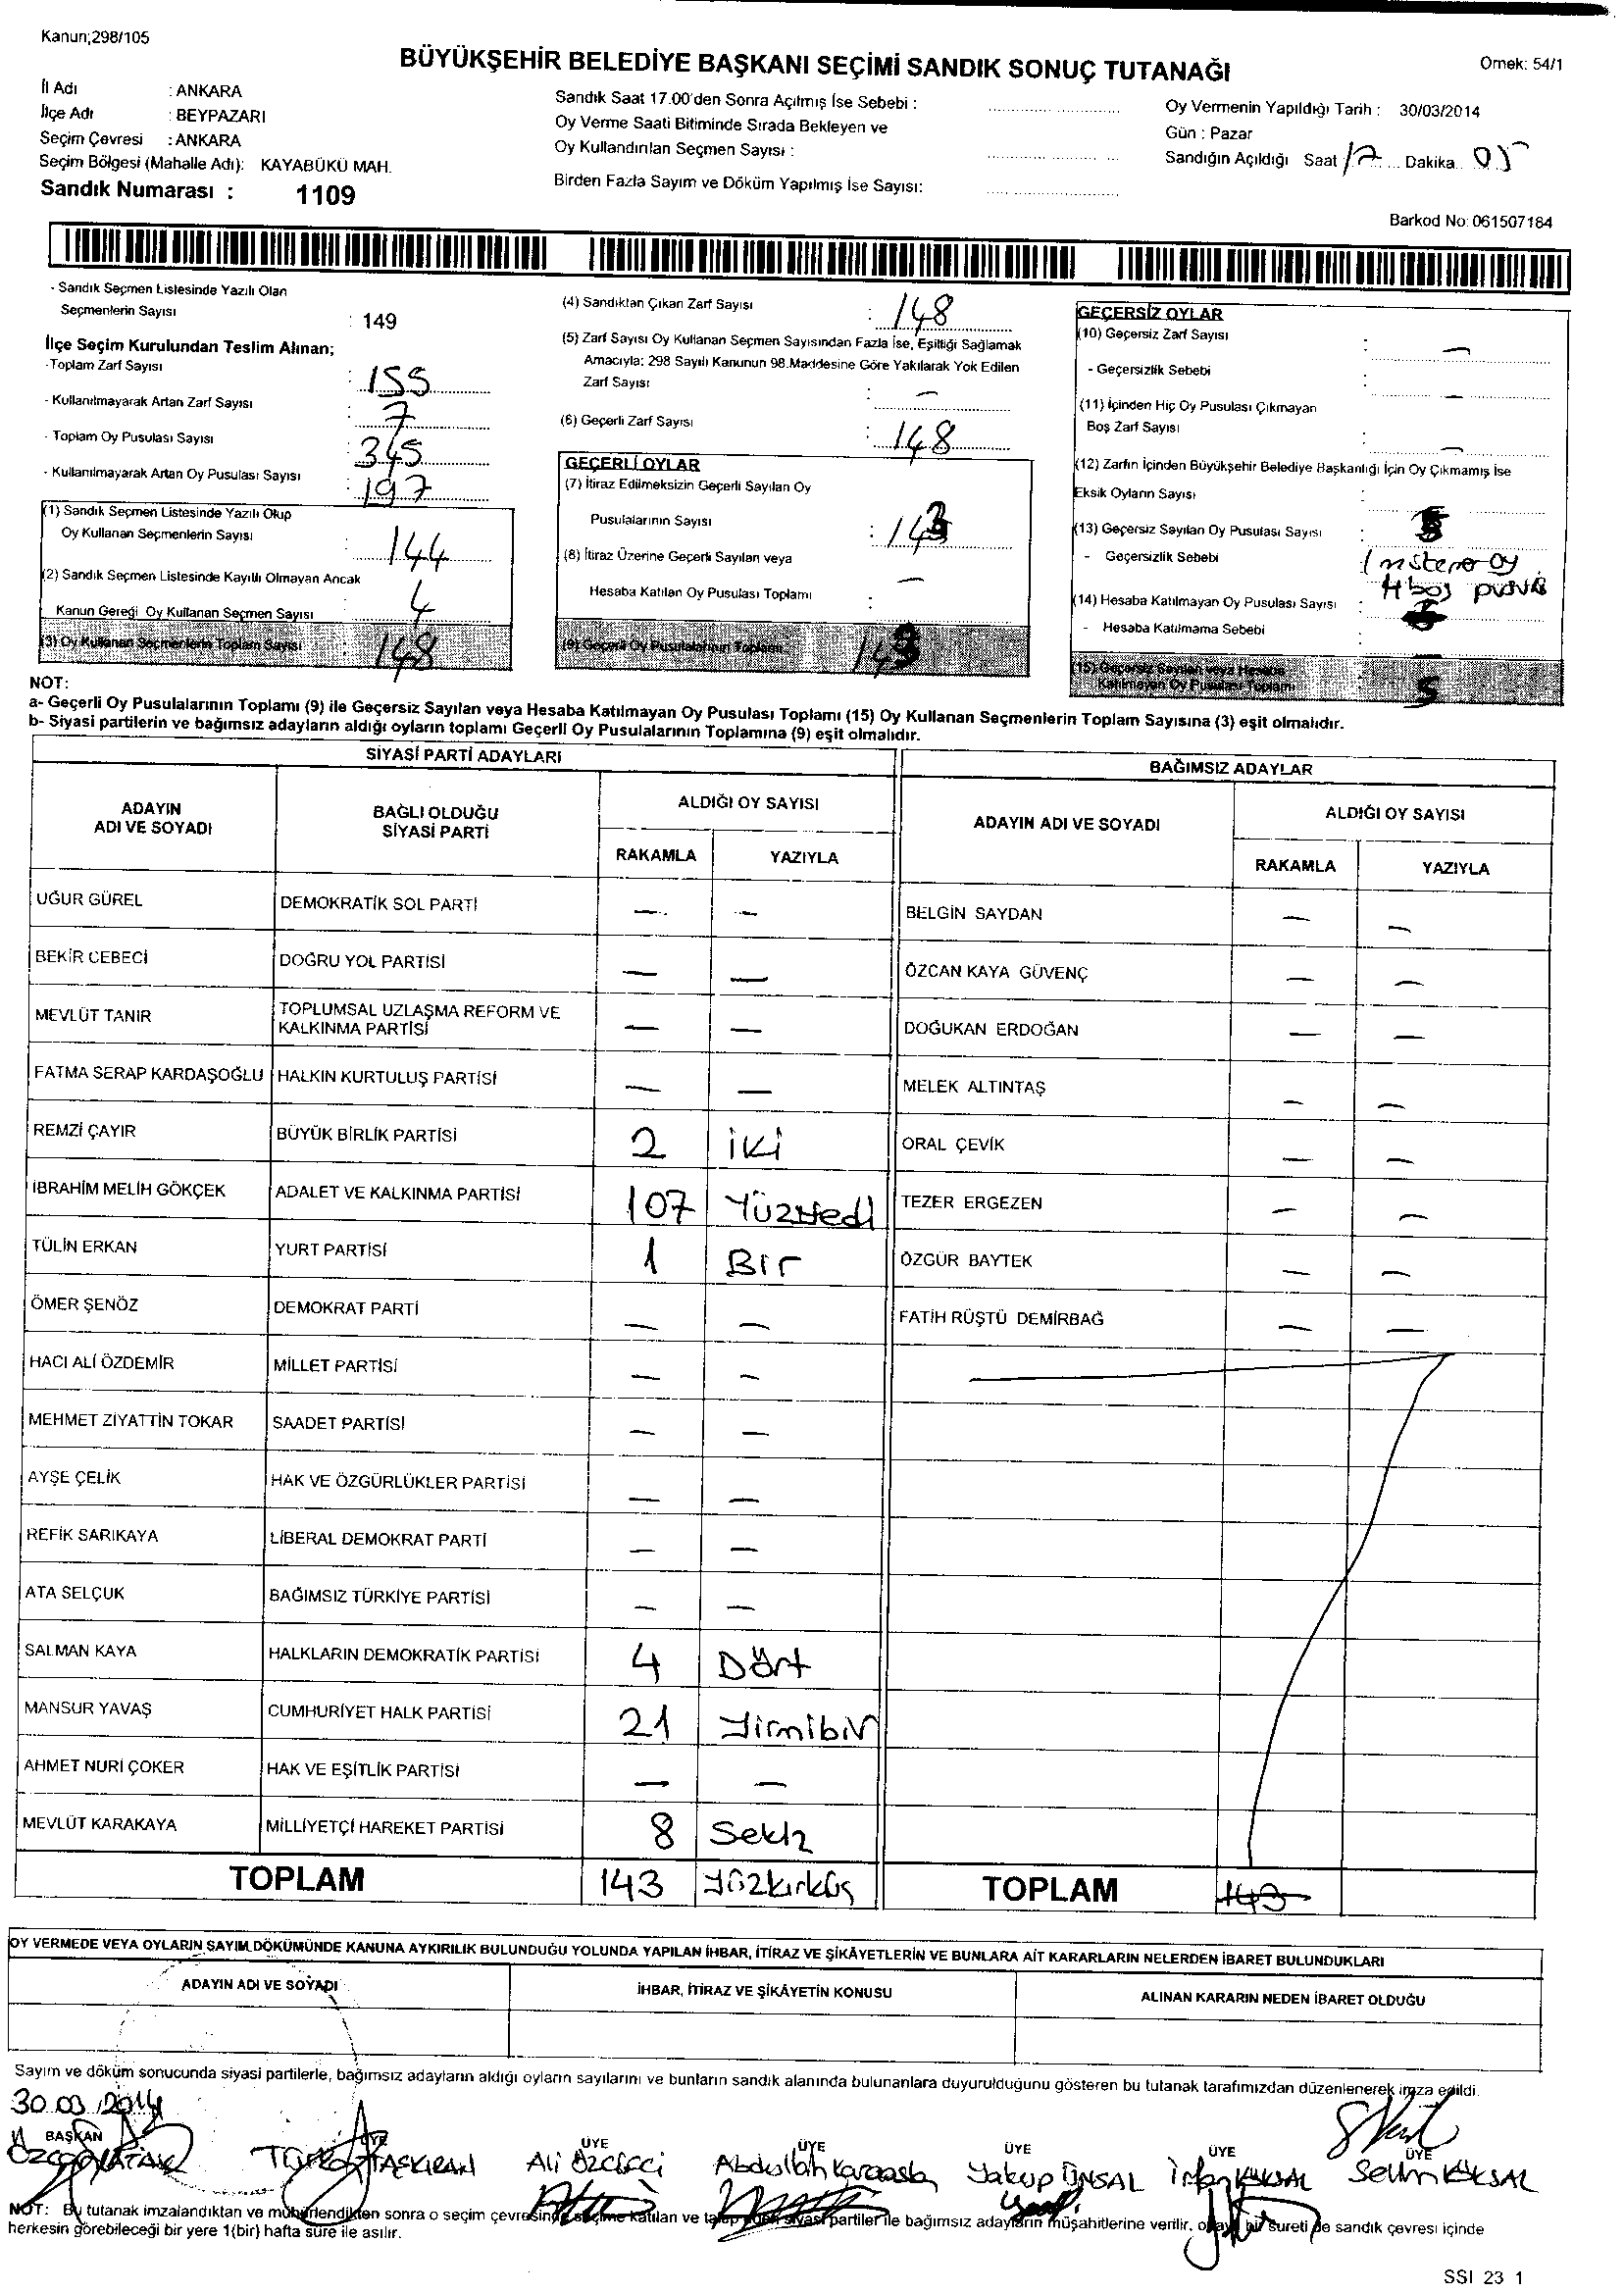 Kanun;298/105
BÜYÜKŞEHİR BELEDİYE BAŞKANI SEÇİMİ SANDIK SONUÇ TUTANAĞI
Örnek: 54/1
İl Adı : ANKARA
İlçe Adı : BEYPAZARI
Seçim Çevresi : ANKARA
Seçim Bölgesi (Mahalle Adı): KAYABÜKÜ MAH.
Sandık Numarası : 1109
Sandık Saat 17.00'den Sonra Açılmış İse Sebebi :
Oy Verme Saati Bitiminde Sırada Bekleyen ve
Oy Kullandırılan Seçmen Sayısı :
Birden Fazla Sayım ve Döküm Yapılmış İse Sayısı:
Oy Vermenin Yapıldığı Tarih : 30/03/2014
Gün : Pazar
Sandığın Açıldığı Saat 17 Dakika 05
Barkod No: 061507184
- Sandık Seçmen Listesinde Yazılı Olan
Seçmenlerin Sayısı : 149
İlçe Seçim Kurulundan Teslim Alınan;
-Toplam Zarf Sayısı : 155
- Kullanılmayarak Artan Zarf Sayısı : 7
- Toplam Oy Pusulası Sayısı : 345
- Kullanılmayarak Artan Oy Pusulası Sayısı : 197
(1) Sandık Seçmen Listesinde Yazılı Olup
Oy Kullanan Seçmenlerin Sayısı : 144
(2) Sandık Seçmen Listesinde Kayıtlı Olmayan Ancak
Kanun Gereği Oy Kullanan Seçmen Sayısı : 4
(3) Oy Kullanan Seçmenlerin Toplam Sayısı 148
(4) Sandıktan Çıkan Zarf Sayısı : 148
(5) Zarf Sayısı Oy Kullanan Seçmen Sayısından Fazla İse, Eşitliği Sağlamak
Amacıyla; 298 Sayılı Kanunun 98.Maddesine Göre Yakılarak Yok Edilen
Zarf Sayısı : —
(6) Geçerli Zarf Sayısı : 148
GEÇERLİ OYLAR
(7) İtiraz Edilmeksizin Geçerli Sayılan Oy
Pusulalarının Sayısı : 143
(8) İtiraz Üzerine Geçerli Sayılan veya
Hesaba Katılan Oy Pusulası Toplamı : —
(9) Geçerli Oy Pusulalarının Toplamı 143
GEÇERSİZ OYLAR
(10) Geçersiz Zarf Sayısı : —
- Geçersizlik Sebebi : —
(11) İçinden Hiç Oy Pusulası Çıkmayan
Boş Zarf Sayısı : —
(12) Zarfın İçinden Büyükşehir Belediye Başkanlığı İçin Oy Çıkmamış İse
Eksik Oyların Sayısı :
(13) Geçersiz Sayılan Oy Pusulası Sayısı : 5
- Geçersizlik Sebebi
(14) Hesaba Katılmayan Oy Pusulası Sayısı :
- Hesaba Katılmama Sebebi :
(15) Geçersiz Sayılan veya Hesaba
Katılmayan Oy Pusulası Toplamı 5
NOT:
a- Geçerli Oy Pusulalarının Toplamı (9) ile Geçersiz Sayılan veya Hesaba Katılmayan Oy Pusulası Toplamı (15) Oy Kullanan Seçmenlerin Toplam Sayısına (3) eşit olmalıdır.
b- Siyasi partilerin ve bağımsız adayların aldığı oyların toplamı Geçerli Oy Pusulalarının Toplamına (9) eşit olmalıdır.
SİYASİ PARTİ ADAYLARI
ADAYIN ADI VE SOYADI BAĞLI OLDUĞU SİYASİ PARTİ ALDIĞI OY SAYISI
RAKAMLA YAZIYLA
UĞUR GÜREL DEMOKRATİK SOL PARTİ — —
BEKİR CEBECİ DOĞRU YOL PARTİSİ — —
MEVLÜT TANIR TOPLUMSAL UZLAŞMA REFORM VE KALKINMA PARTİSİ — —
FATMA SERAP KARDAŞOĞLU HALKIN KURTULUŞ PARTİSİ — —
REMZİ ÇAYIR BÜYÜK BİRLİK PARTİSİ 2 iki
İBRAHİM MELİH GÖKÇEK ADALET VE KALKINMA PARTİSİ 107 Yüzyedi
TÜLİN ERKAN YURT PARTİSİ 1 Bir
ÖMER ŞENÖZ DEMOKRAT PARTİ — —
HACI ALİ ÖZDEMİR MİLLET PARTİSİ — —
MEHMET ZİYATTİN TOKAR SAADET PARTİSİ — —
AYŞE ÇELİK HAK VE ÖZGÜRLÜKLER PARTİSİ — —
REFİK SARIKAYA LİBERAL DEMOKRAT PARTİ — —
ATA SELÇUK BAĞIMSIZ TÜRKİYE PARTİSİ — —
SALMAN KAYA HALKLARIN DEMOKRATİK PARTİSİ 4 Dört
MANSUR YAVAŞ CUMHURİYET HALK PARTİSİ 21 Yirmibir
AHMET NURİ ÇOKER HAK VE EŞİTLİK PARTİSİ — —
MEVLÜT KARAKAYA MİLLİYETÇİ HAREKET PARTİSİ 8 Sekiz
TOPLAM 143 Yüzkırküç
BAĞIMSIZ ADAYLAR
ADAYIN ADI VE SOYADI ALDIĞI OY SAYISI
RAKAMLA YAZIYLA
BELGİN SAYDAN — —
ÖZCAN KAYA GÜVENÇ — —
DOĞUKAN ERDOĞAN — —
MELEK ALTINTAŞ — —
ORAL ÇEVİK — —
TEZER ERGEZEN — —
ÖZGÜR BAYTEK — —
FATİH RÜŞTÜ DEMİRBAĞ — —
TOPLAM 143
OY VERMEDE VEYA OYLARIN SAYIM DÖKÜMÜNDE KANUNA AYKIRILIK BULUNDUĞU YOLUNDA YAPILAN İHBAR, İTİRAZ VE ŞİKÂYETLERİN VE BUNLARA AİT KARARLARIN NELERDEN İBARET BULUNDUKLARI
ADAYIN ADI VE SOYADI İHBAR, İTİRAZ VE ŞİKÂYETİN KONUSU ALINAN KARARIN NEDEN İBARET OLDUĞU
Sayım ve döküm sonucunda siyasi partilerle, bağımsız adayların aldığı oyların sayılarını ve bunların sandık alanında bulunanlara duyurulduğunu gösteren bu tutanak tarafımızdan düzenlenerek imza edildi.
30.03.2014
BAŞKAN ÜYE ÜYE ÜYE ÜYE ÜYE ÜYE
Ali Özcifci Abdullah Karaaslan Yakup ÜNSAL İrfan KÖKSAL Selim KÖKSAL
NOT: Bu tutanak imzalandıktan ve mühürlendikten sonra o seçim çevresinde seçime katılan ve talep eden siyasi partiler ile bağımsız adayların müşahitlerine verilir, onaylı bir sureti de sandık çevresi içinde
herkesin görebileceği bir yere 1(bir) hafta süre ile asılır.
SSI 23 1